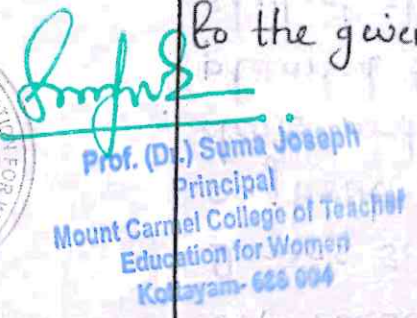 to the given
Prof. (Dr.) Suma Joseph
Principal
Mount Carmel College of Teacher
Education for Women
Kottayam- 686 004